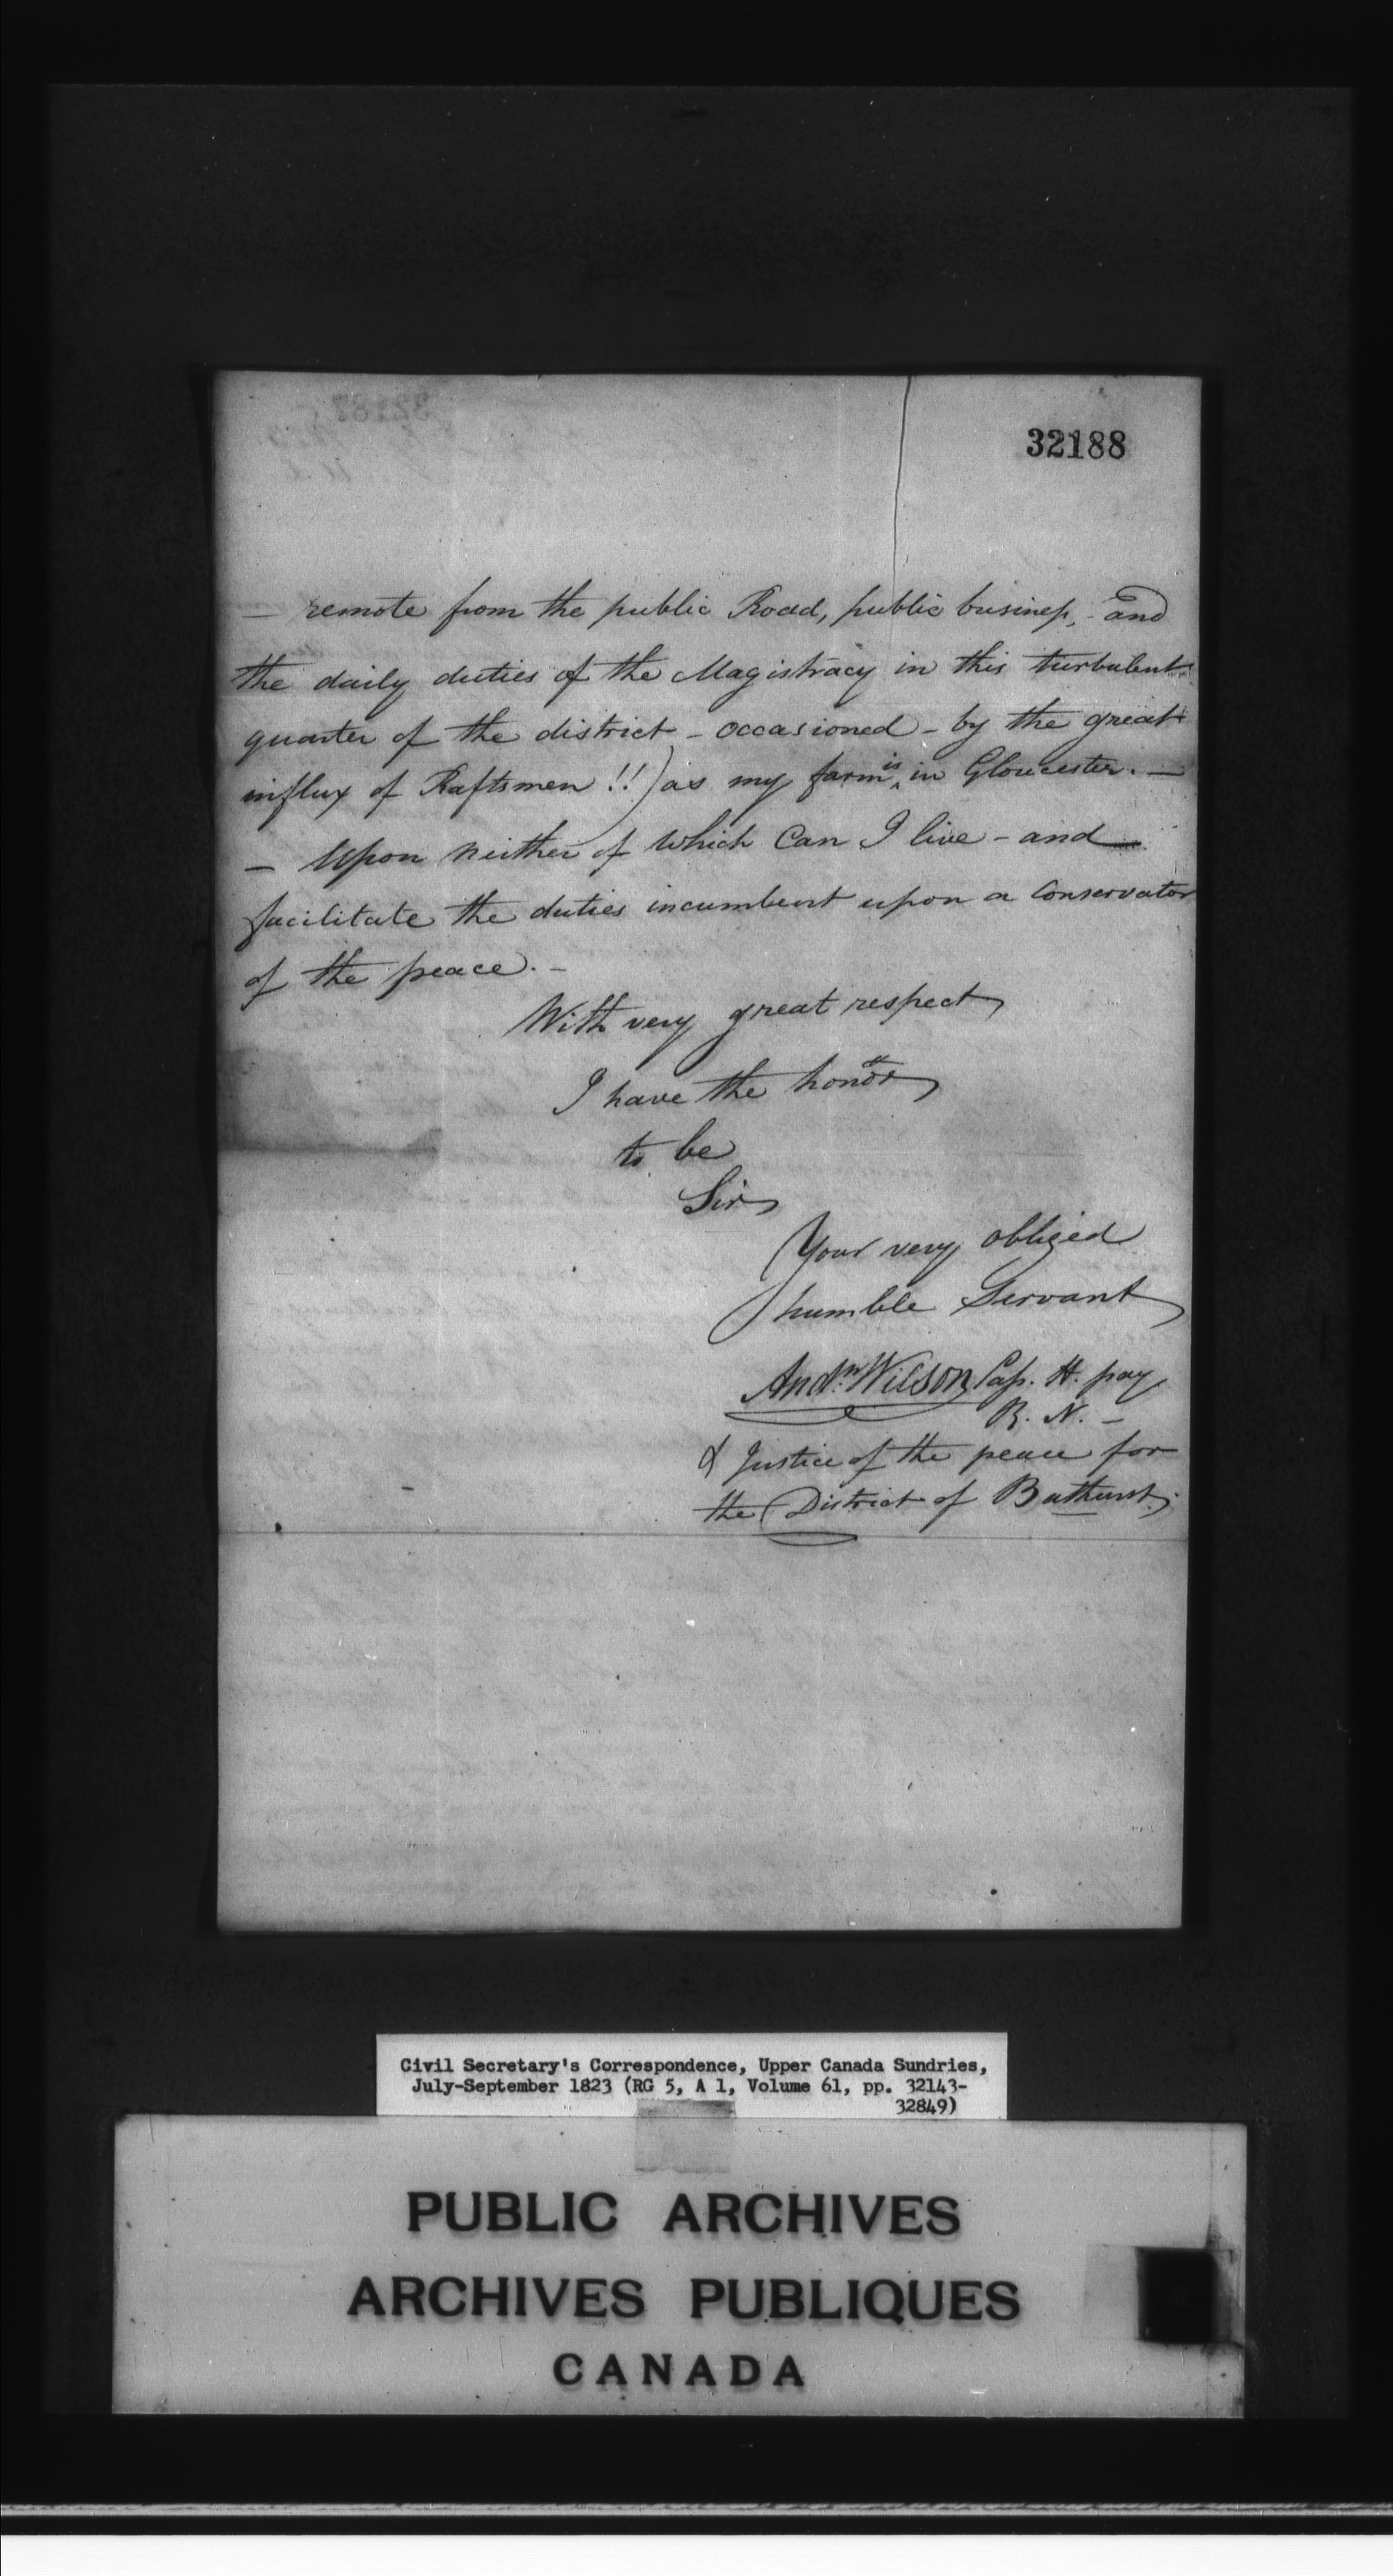 32188
— remote from the public Road, public business, - and
the daily duties of the Magistracy in this turbulent
quarter of the district - occasioned - by the great
influx of Raftsmen !!) as my farm is in Gloucester. —
— Upon neither of which Can I live - and —
facilitate the duties incumbent upon a Conservator
of the peace. -
With very great respect
I have the honor
to be
Sir
Your very obliged
humble Servant
Andw. Wilson Cap. H. pay
R. N. —
& Justice of the peace for
the District of Bathurst.
Civil Secretary's Correspondence, Upper Canada Sundries,
July-September 1823 (RG 5, A 1, Volume 61, pp. 32143-
32849)
PUBLIC ARCHIVES
ARCHIVES PUBLIQUES
CANADA